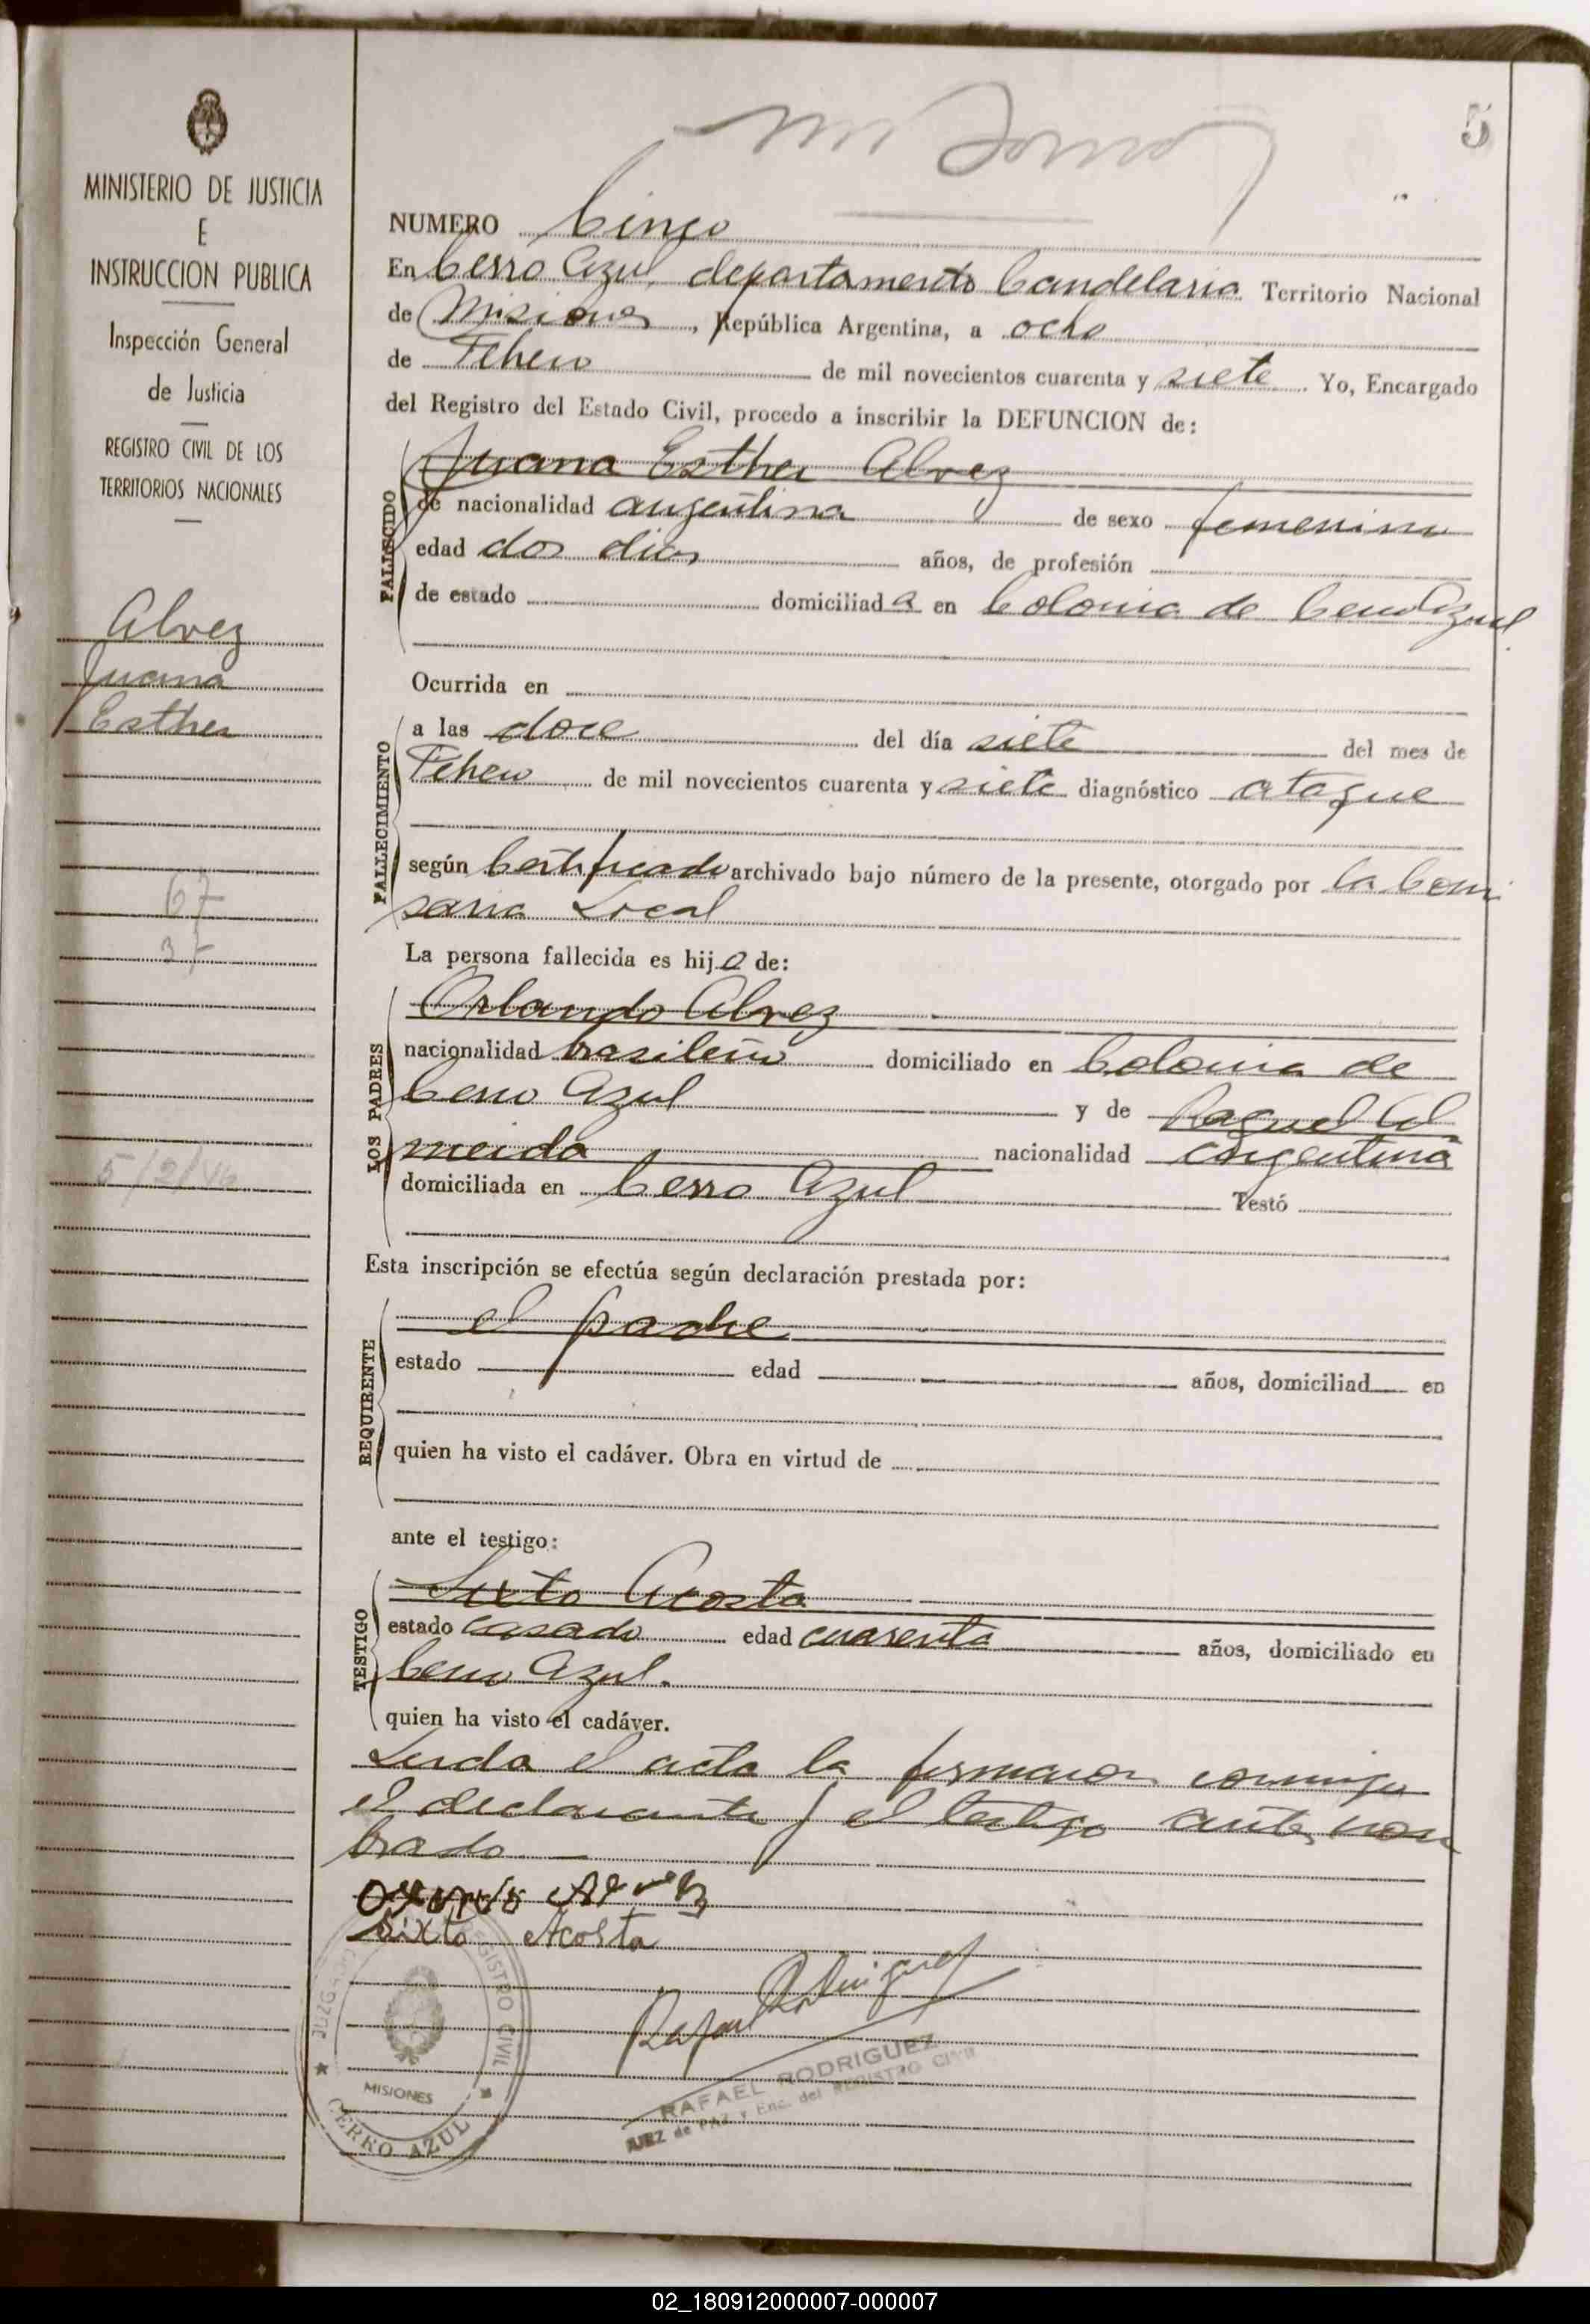 5
MINISTERIO DE JUSTICIA
E
INSTRUCCION PUBLICA
Inspección General
de Justicia
REGISTRO CIVIL DE LOS
TERRITORIOS NACIONALES
Alvez
Juana
Esther
67
37
5/2/46
NUMERO Cinco
En Cerro Azul, departamento Candelaria Territorio Nacional
de Misiones, República Argentina, a ocho
de Febero de mil novecientos cuarenta y siete. Yo, Encargado
del Registro del Estado Civil, procedo a inscribir la DEFUNCION de:
FALLECIDO
Juana Esther Alvez
de nacionalidad argentina de sexo femenino
edad dos dias años, de profesión
de estado domiciliada en Colonia de Cerro Azul
Ocurrida en
FALLECIMIENTO
a las doce del día siete del mes de
Febero de mil novecientos cuarenta y siete diagnóstico ataque
según Certificado archivado bajo número de la presente, otorgado por la Comi
saria Local
La persona fallecida es hija de:
LOS PADRES
Orlando Alvez
nacionalidad brasileño domiciliado en Colonia de
Cerro Azul y de Raquel Al
meida nacionalidad argentina
domiciliada en Cerro Azul Testó
Esta inscripción se efectúa según declaración prestada por:
REQUIRENTE
el padre
estado edad años, domiciliad en
quien ha visto el cadáver. Obra en virtud de
ante el testigo:
TESTIGO
Sixto Acosta
estado casado edad cuarenta años, domiciliado en
Cerro Azul.
quien ha visto el cadáver.
Leida el acta la firmaron conmigo
el declarante y el testigo antes nom
brado
Sixto Acosta
Rafael Rodriguez
RAFAEL RODRIGUEZ
JUEZ de PAZ y Enc. del REGISTRO CIVIL
JUZGADO REGISTRO CIVIL
MISIONES
CERRO AZUL
02_180912000007-000007